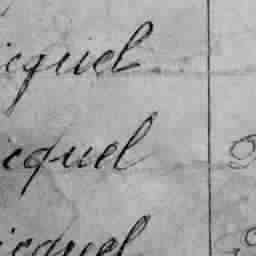 icquel
icquel
icquel